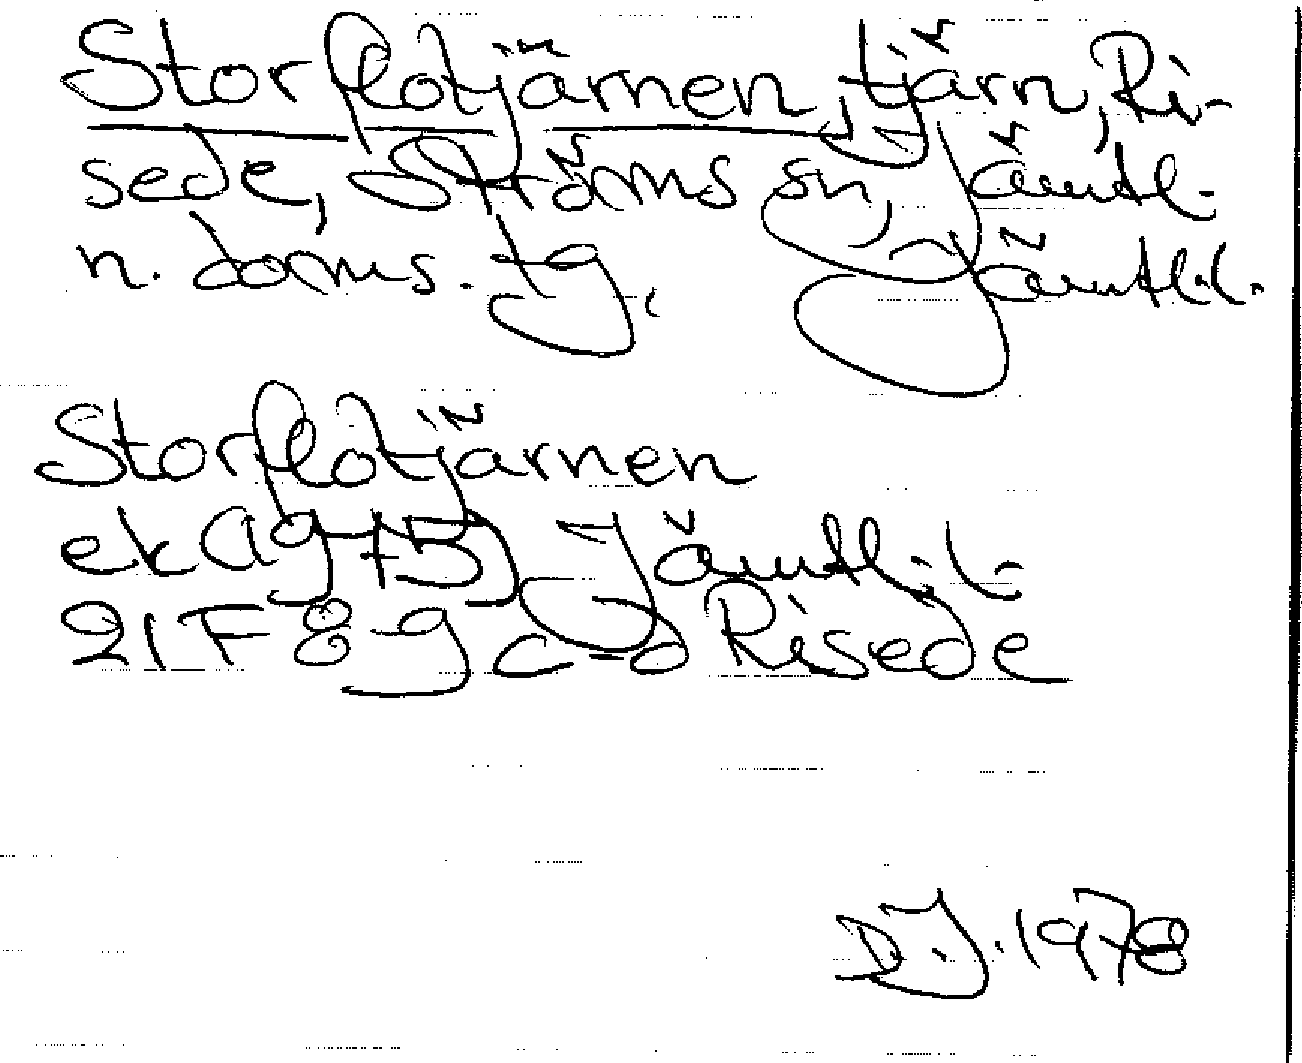 Storflotjärnen, tjärn, Ri-
sede, Ströms sn, Jämtl.
n. doms. tg. Jämtl.l.
Storflotjärnen
ek (1975) Jämtl.l.
21F 8-9 c-d Risede
D.J. 1978